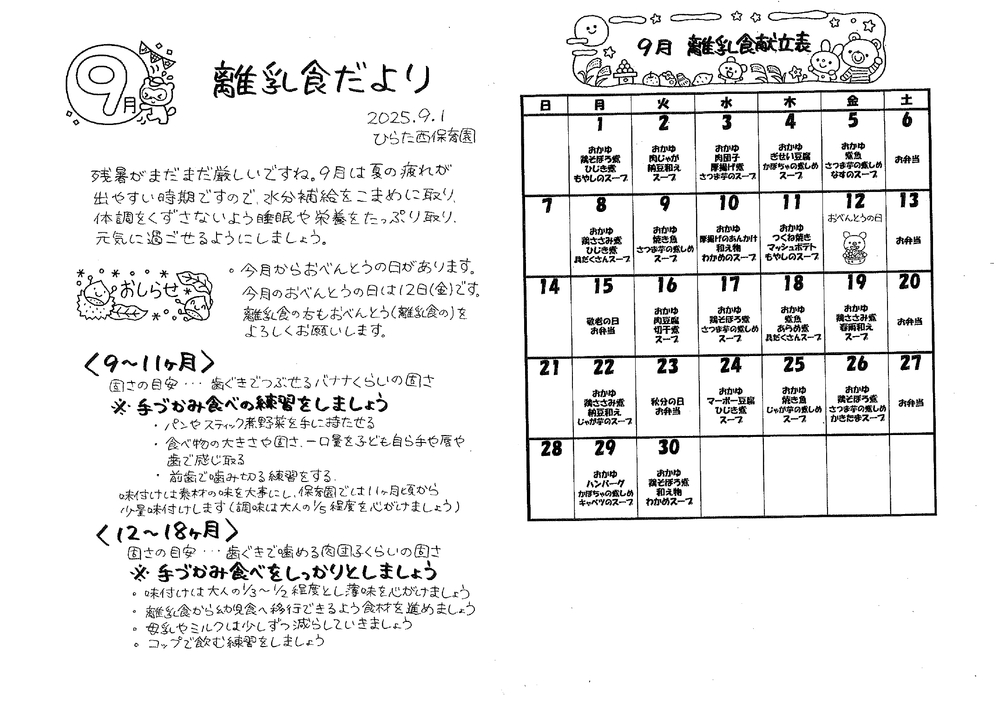 9月
離乳食だより
2025.9.1
ひらた西保育園
残暑がまだまだ厳しいですね。9月は夏の疲れが
出やすい時期ですので、水分補給をこまめに取り、
体調をくずさないよう睡眠や栄養をたっぷり取り、
元気に過ごせるようにしましょう。
おしらせ
。今月からおべんとうの日があります。
今月のおべんとうの日は12日(金)です。
離乳食の方もおべんとう(離乳食の)を
よろしくお願いします。
〈9~11ヶ月〉
固さの目安・・・歯ぐきでつぶせるバナナくらいの固さ
※ 手づかみ食べの練習をしましょう
・パンやスティック煮野菜を手に持たせる
・食べ物の大きさや固さ、一口量を子ども自ら手や唇や
歯で感じ取る
・前歯で噛み切る練習をする.
味付けは素材の味を大事にし、保育園では11ヶ月頃から
少量味付けします(調味は大人の1/5程度を心がけましょう)
〈12~18ヶ月〉
固さの目安・・・歯ぐきで噛める肉団子くらいの固さ
※ 手づかみ食べをしっかりとしましょう
。味付けは大人の1/3~1/2程度とし薄味を心がけましょう
。離乳食から幼児食へ移行できるよう食材を進めましょう
。母乳やミルクは少しずつ減らしていきましょう
。コップで飲む練習をしましょう
9月 離乳食献立表
日 月 火 水 木 金 土
1
おかゆ
鶏そぼろ煮
ひじき煮
もやしのスープ
2
おかゆ
肉じゃが
納豆和え
スープ
3
おかゆ
肉団子
厚揚げ煮
さつま芋のスープ
4
おかゆ
ぎせい豆腐
かぼちゃの煮しめ
スープ
5
おかゆ
煮魚
さつま芋の煮しめ
なすのスープ
6
お弁当
7
8
おかゆ
鶏ささみ煮
ひじき煮
具だくさんスープ
9
おかゆ
焼き魚
さつま芋の煮しめ
スープ
10
おかゆ
厚揚げのあんかけ
和え物
わかめのスープ
11
おかゆ
つくね焼き
マッシュポテト
もやしのスープ
12
おべんとうの日
13
お弁当
14
15
敬老の日
お弁当
16
おかゆ
肉豆腐
切干煮
スープ
17
おかゆ
鶏そぼろ煮
さつま芋の煮しめ
スープ
18
おかゆ
煮魚
あらめ煮
具だくさんスープ
19
おかゆ
鶏ささみ煮
春雨和え
スープ
20
お弁当
21
22
おかゆ
鶏ささみ煮
納豆和え
じゃが芋のスープ
23
秋分の日
お弁当
24
おかゆ
マーボー豆腐
ひじき煮
スープ
25
おかゆ
焼き魚
じゃが芋の煮しめ
スープ
26
おかゆ
鶏そぼろ煮
さつま芋の煮しめ
かきたまスープ
27
お弁当
28
29
おかゆ
ハンバーグ
かぼちゃの煮しめ
キャベツのスープ
30
おかゆ
鶏そぼろ煮
和え物
わかめスープ